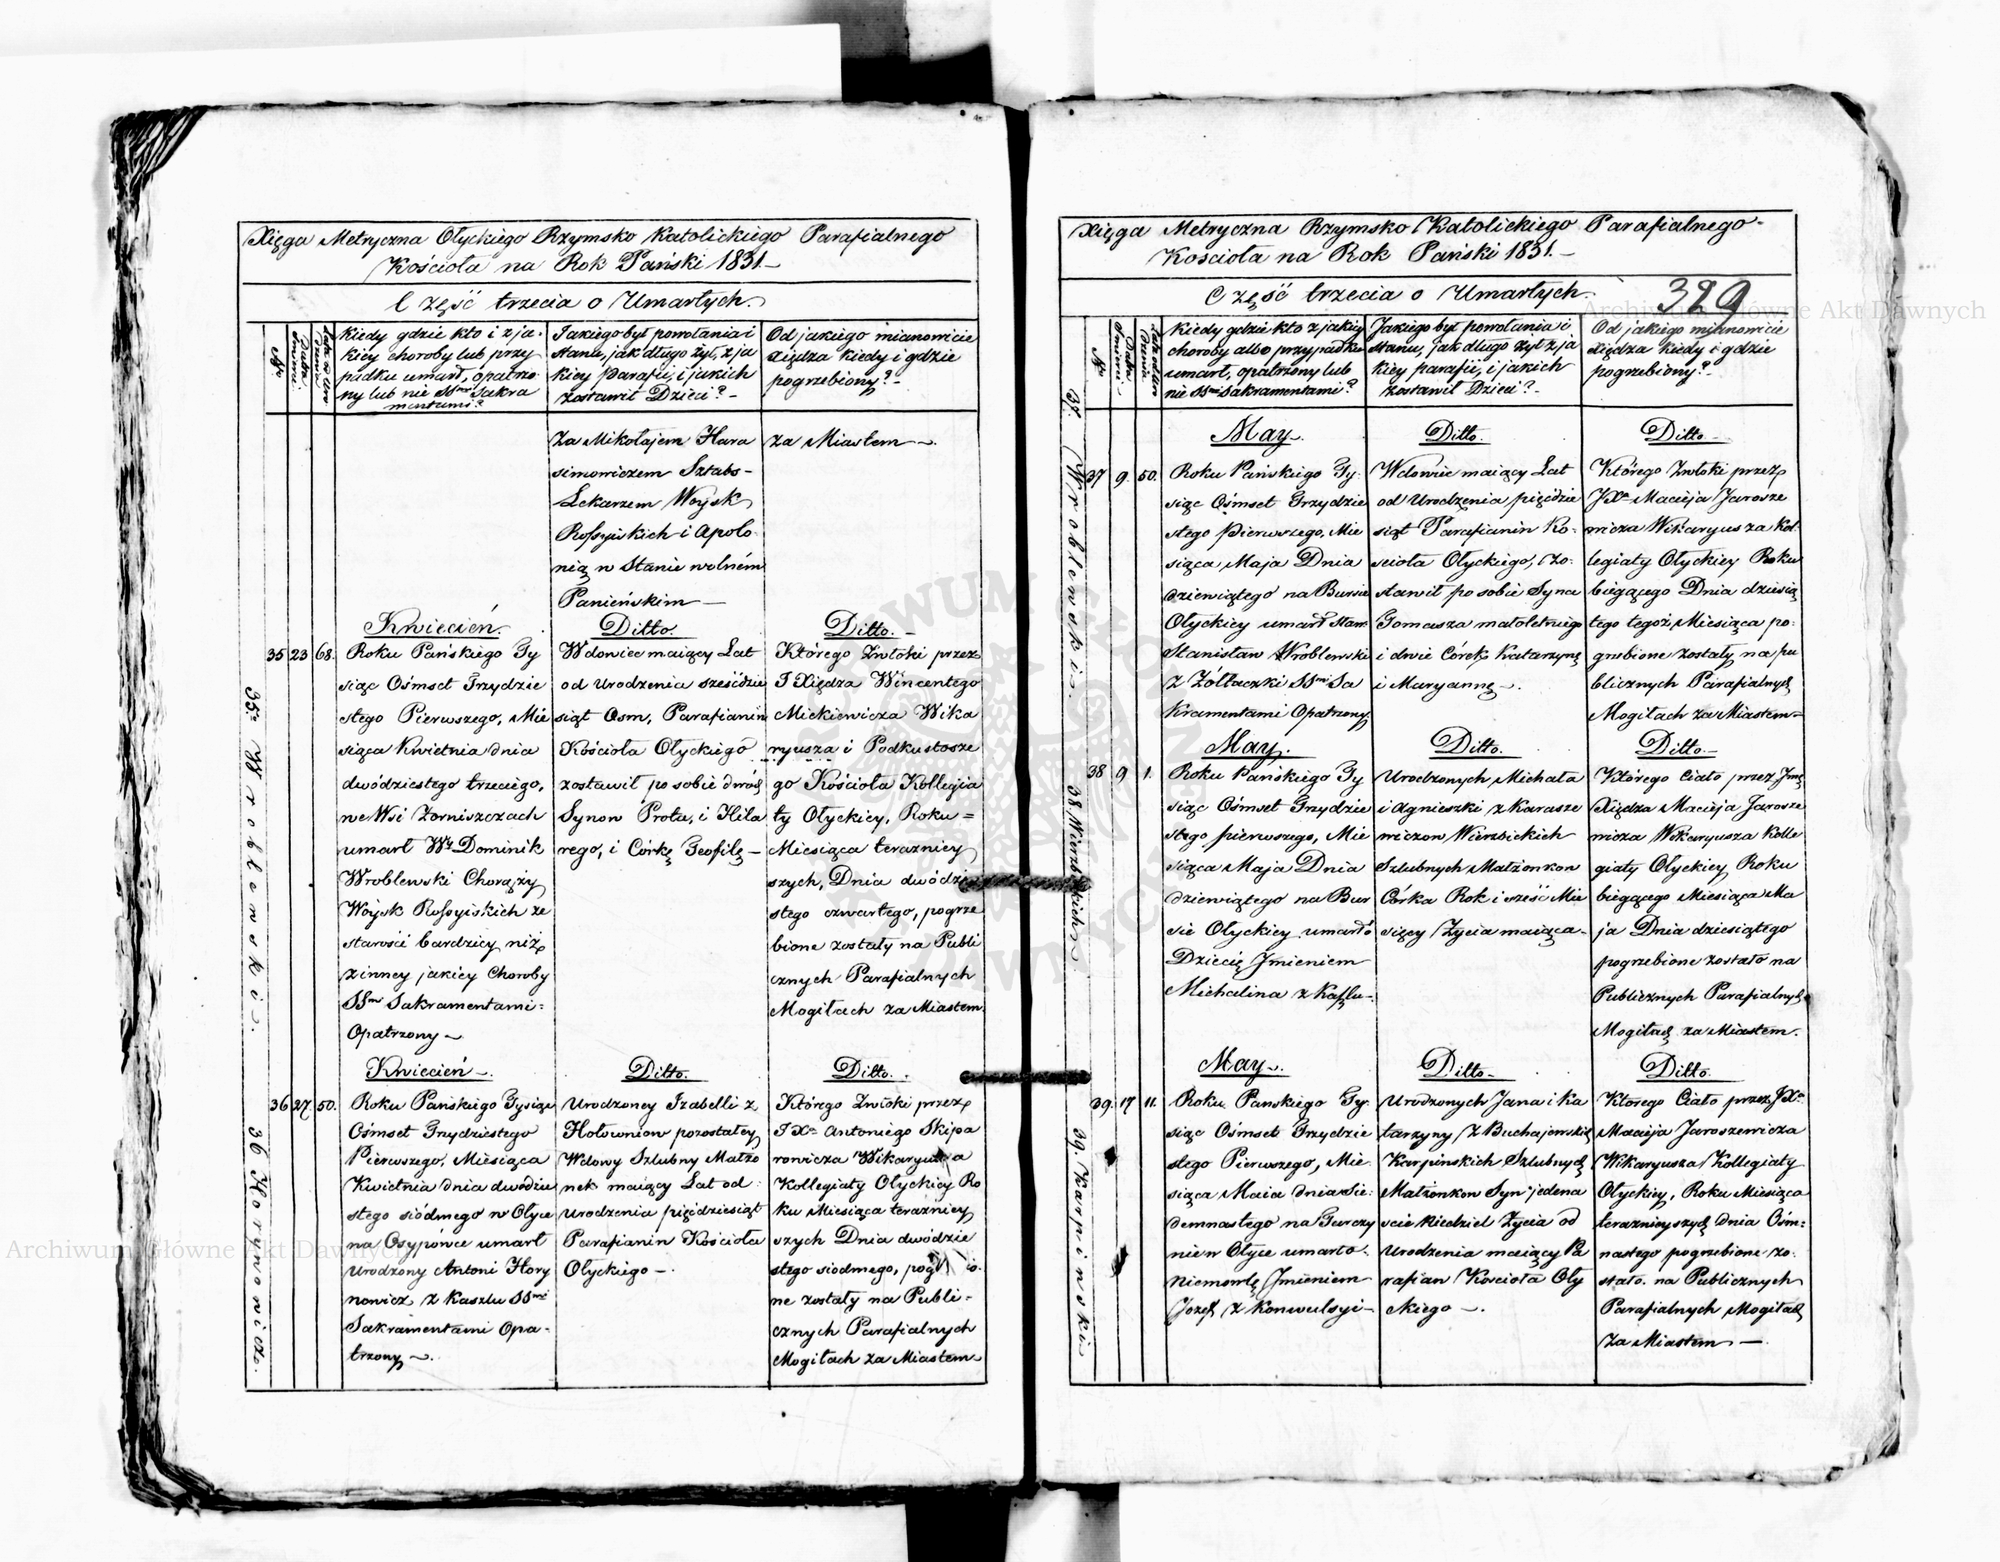 Xięga Metryczna Ołyckiego Rzymsko Katolickiego Parafialnego
Kościoła na Rok Pański 1831.–
Część trzecia o Umarłych.
Nro
Data śmierci.
Kiedy gdzie kto i z ja-
kiey choroby lub przy
padku umarł, opatrzo-
ny lub nie SSmi Sakra
mentami?
Jakiego był powołania i
stanu, jak długo żył, z ja
kiey Parafii, i jakich
zostawił Dzieci? –
Od jakiego mianowicie
Xiędza kiedy i gdzie
pogrzebiony? –
za Mikołajem Hara
simowiczem Sztabs-
Lekarzem Woysk
Rossyiskich i Apolo
nią w Stanie wolném
Panieńskim —
za Miastem –.
35. Wroblewski.
Kwiecień.
35 23 68.
Roku Pańskiego Ty
siąc Ośmset Trzydzie
stego Pierwszego, Mie
siąca Kwietnia dnia
dwódziestego trzeciego,
we Wsi Żorniszczach
umarł Wy Dominik
Wroblewski Chorąży
Woysk Rossyiskich ze
starości bardziey niż
z inney jakiey Choroby
SSmi Sakramentami-
Opatrzony –
Ditto.
Wdowiec maiący Lat
od Urodzenia sześćdzie
siąt Osm, Parafianin
Kościoła Ołyckiego
zostawił po sobie dwóch
Synow Prota, i Hila
rego, i Córkę Teofilę –
Ditto. –
Którego Zwłoki przez
J Xiędza Wincentego
Mickiewicza Wika
ryusza i Podkustosze
go Kościoła Kollegia
ty Ołyckiey, Roku =
Miesiąca terazniey
szych, Dnia dwódzie
stego czwartego, pogrze
bione zostały na Publi
cznych Parafialnych
Mogiłach za Miastem.
36 Horynowicz.
Kwiecień –.
36 27. 50.
Roku Pańskiego Tysiąc
Ośmset Trzydziestego
Pierwszego, Miesiąca
Kwietnia dnia dwódzie
stego siódmego w Ołyce
na Osypówce umarł
Urodzony Antoni Hory
nowicz z Kaszlu SSmi
Sakramentami Opa-
trzony –.
Ditto.
Urodzoney Izabelli z
Hołowniow pozostałey
Wdowy Szlubny Małżo
nek maiący Lat od
Urodzenia pięćdziesiąt
Parafianin Kościoła
Ołyckiego –.
Ditto. .
Którego Zwłoki przez
J Xa Antoniego Skipa
rowicza Wikaryusza
Kollegiaty Ołyckiey Ro
ku Miesiąca terazniey
szych Dnia dwódzie
stego siodmego,
ne zostały na Publi-
cznych Parafialnych
Mogiłach za Miastem
Xięga Metryczna Rzymsko Katolickiego Parafialnego-
Kościoła na Rok Pański 1831. –
Część trzecia o Umarłych.
329
Nro
Data śmierci.
Kiedy gdzie kto z jakiey
choroby albo przypadku
umarł, opatrzony lub
nie SSmi Sakramentami?
Jakiego był powołania i
stanu, jak długo żył z ja
kiey parafii, i jakich
zostawił Dzieci? –
Od jakiego mianowicie
Xiędza kiedy i gdzie
pogrzebiony? –
37. Wroblewski.
May.
37 9. 50.
Roku Pańskiego Ty-
siąc Ośmset Trzydzie
stego Pierwszego, Mie
siąca Maja Dnia
dziewiątego na Bursie
Ołyckiey umarł
Stanisław Wroblewski
z Żółtaczki SSmi Sa
kramentami Opatrzony.
Ditto.
Wdowiec maiący Lat
od Urodzenia pięćdzie
siąt Parafianin Ko-
scioła Ołyckiego, zo-
stawił po sobie Syna
Tomasza małoletniego
i dwie Córek Katarzynę
i Maryannę –.
Ditto –
Którego Zwłoki przez
JXa Macieja Jarosze
wicza Wikaryusza Kol
legiaty Ołyckiey Roku
biegącego Dnia dziesią
tego tegoż Miesiąca po-
grzebione zostały na pu
blicznych Parafialnych
Mogiłach za Miastem –
38 Wierzbickich
May.
38 9 1.
Roku Pańskiego Ty
siąc Ośmset Trzydzie
stego pierwszego, Mie
siąca Maja Dnia
dziewiątego na Bur
sie Ołyckiey umarło
Dziecię Jmieniem
Michalina z Kaszlu –.
Ditto.
Urodzonych Michała
i Agnieszki z Karasze
wiczow Wierzbickich
Szlubnych Małżonkow
Córka Rok i sześć Mie
sięcy Życia maiąca –
Ditto. –
Którego Ciało przez Jmć
Xiędza Macieja Jarosze
wicza Wikaryusza Kolle
giaty Ołyckiey Roku
biegącego Miesiąca Ma
ja Dnia dziesiątego
pogrzebione zostało na
Publicznych Parafialnych
Mogiłach za Miastem.
39. Karpinski
May –.
39. 17 11.
Roku Pańskiego Ty-
siąc Ośmset Trzydzie
stego Pierwszego, Mie
siąca Maia dnia Sie-
demnastego na
nie w Ołyce umarło-
Niemowlę Jmieniem
Jozef z Konwulsyi –
Ditto. –
Urodzonych Jana i Ka
tarzyny z Buchajewskich
Karpinskich Szlubnych
Małżonkow Syn jedena
scie Niedziel Życia od
Urodzenia maiący Pa
rafian Kościoła Oły
ckiego –.
Ditto.
Ktorego Ciało przez JXa
Macieja Jaroszewicza
Wikaryusza Kollegiaty
Ołyckiey, Roku Miesiąca
teraznieyszych dnia Ośm-
nastego pogrzebione zo-
stało. na Publicznych
Parafialnych Mogiłach
za Miastem –
Archiwum Główne Akt Dawnych
Archiwum Główne Akt Dawnych